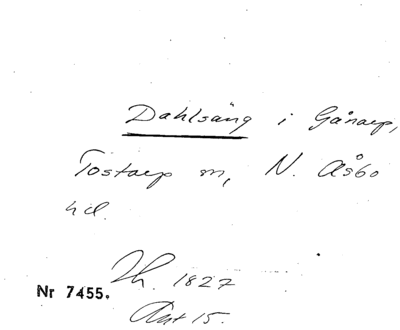 Dahlsäng i Gånarp,
Tostarp m, N. Åsbo
hd.
Jh. 1827
Nr 7455.
Akt 15.